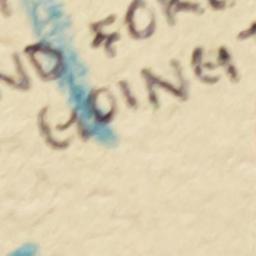 ND FOR
GOING